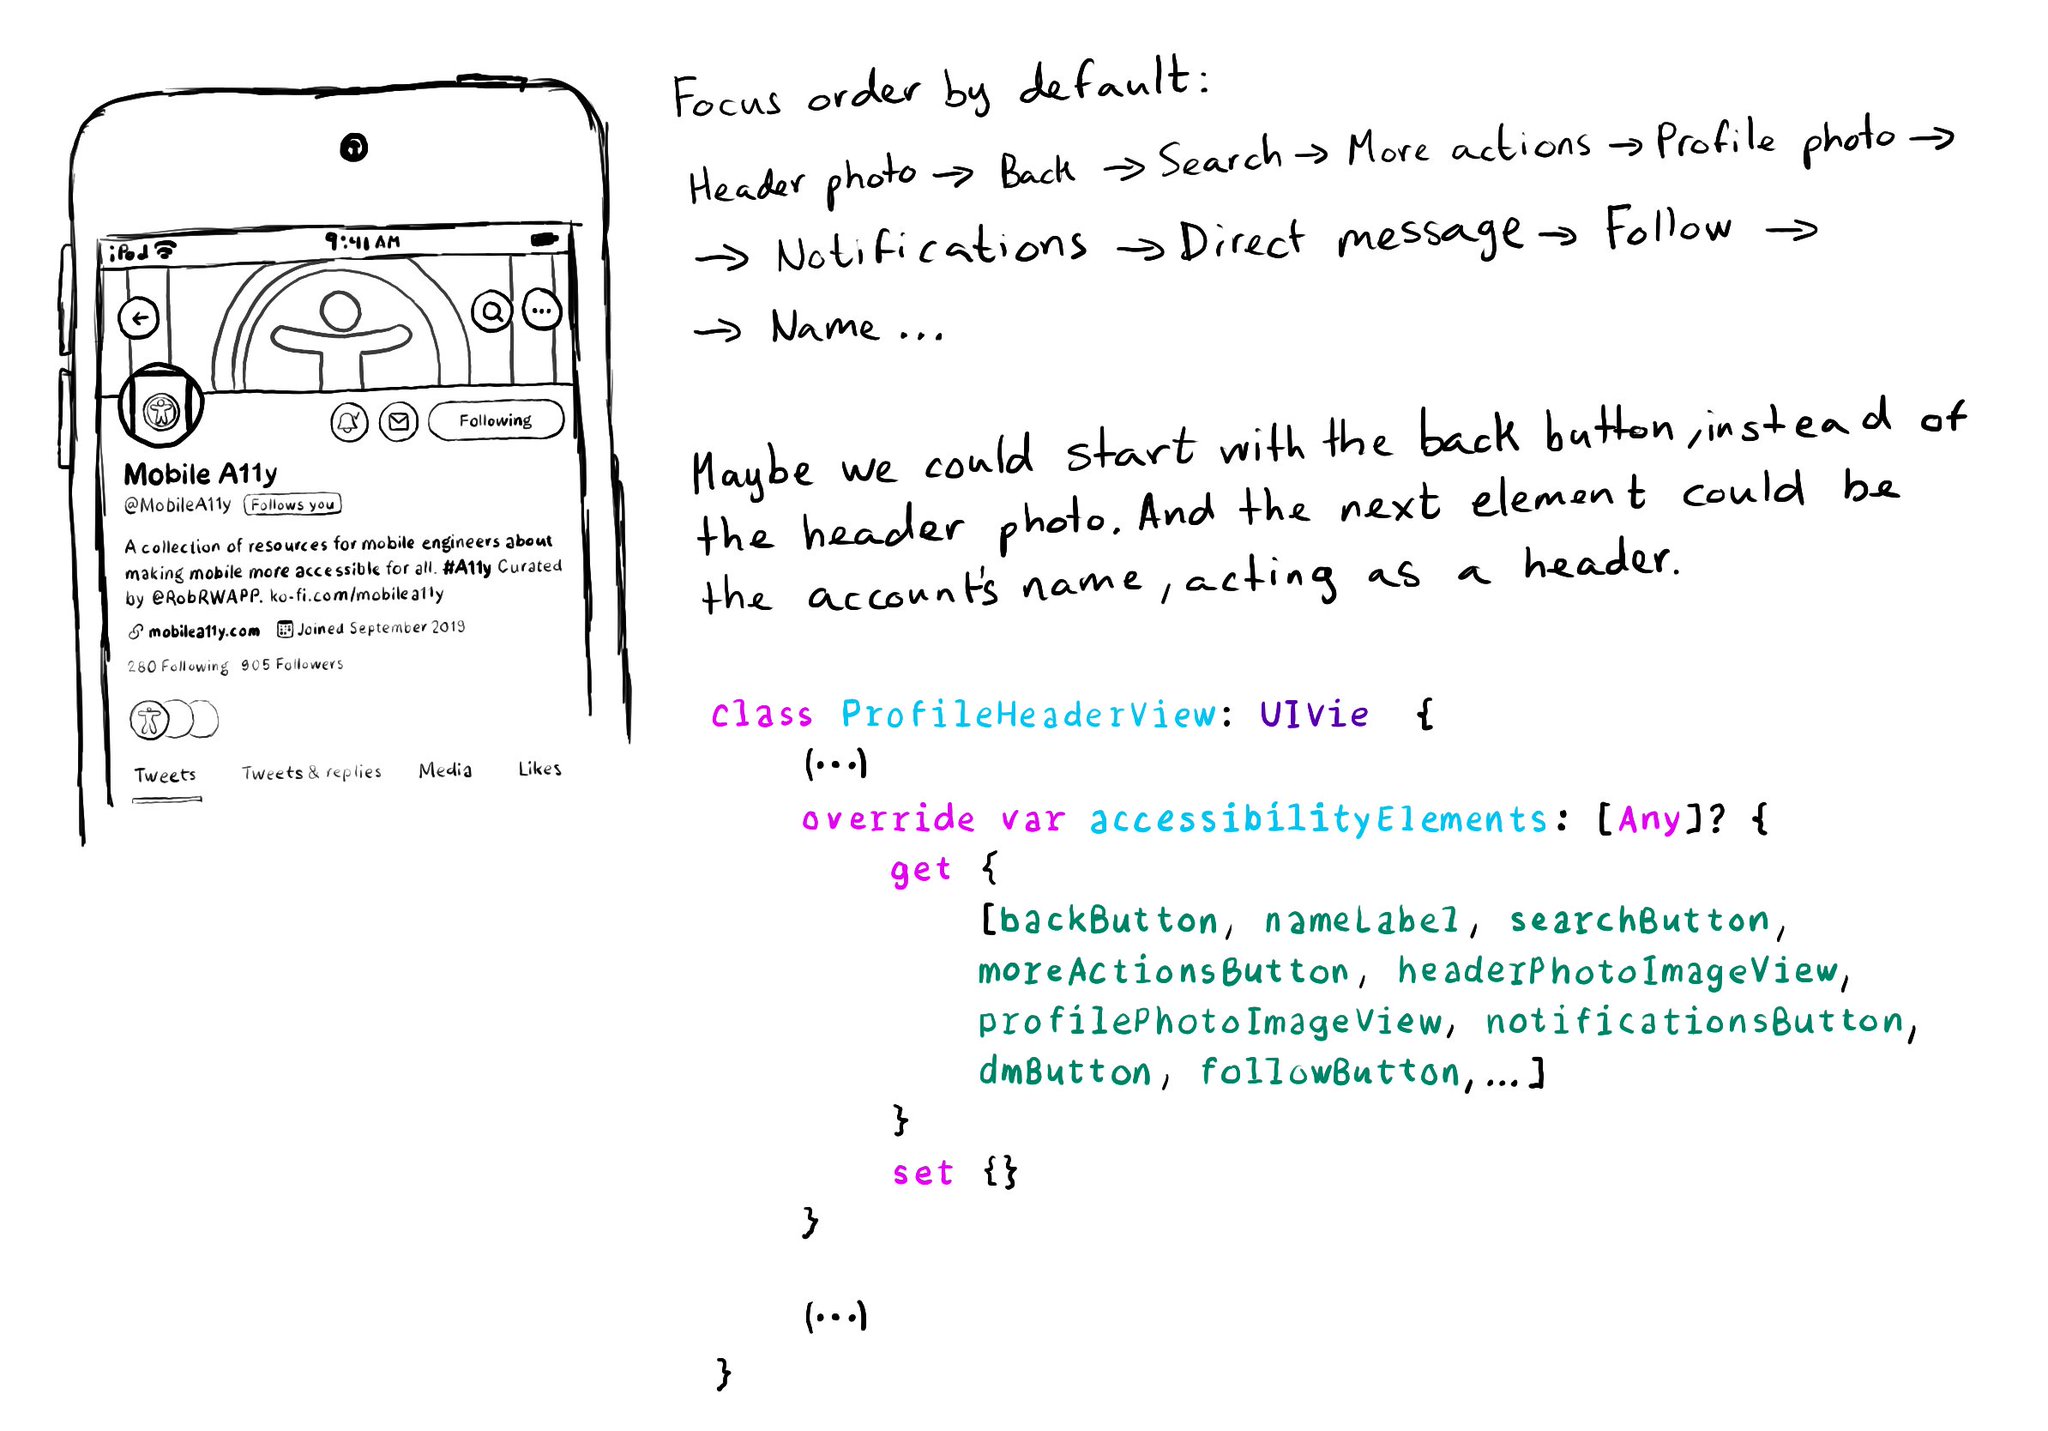 iPod 9:41 AM
Following
Mobile A11y
@MobileA11y Follows you
A collection of resources for mobile engineers about
making mobile more accessible for all. #A11y Curated
by @RobRWAPP. ko-fi.com/mobilea11y
mobilea11y.com Joined September 2019
280 Following 905 Followers
Tweets Tweets & replies Media Likes
Focus order by default:
Header photo → Back → Search → More actions → Profile photo →
→ Notifications → Direct message → Follow →
→ Name ...
Maybe we could start with the back button, instead of
the header photo. And the next element could be
the account's name, acting as a header.
class ProfileHeaderView: UIVie {
(...)
override var accessibilityElements: [Any]? {
get {
[backButton, nameLabel, searchButton,
moreActionsButton, headerPhotoImageView,
profilePhotoImageView, notificationsButton,
dmButton, followButton, ...]
}
set {}
}
(...)
}